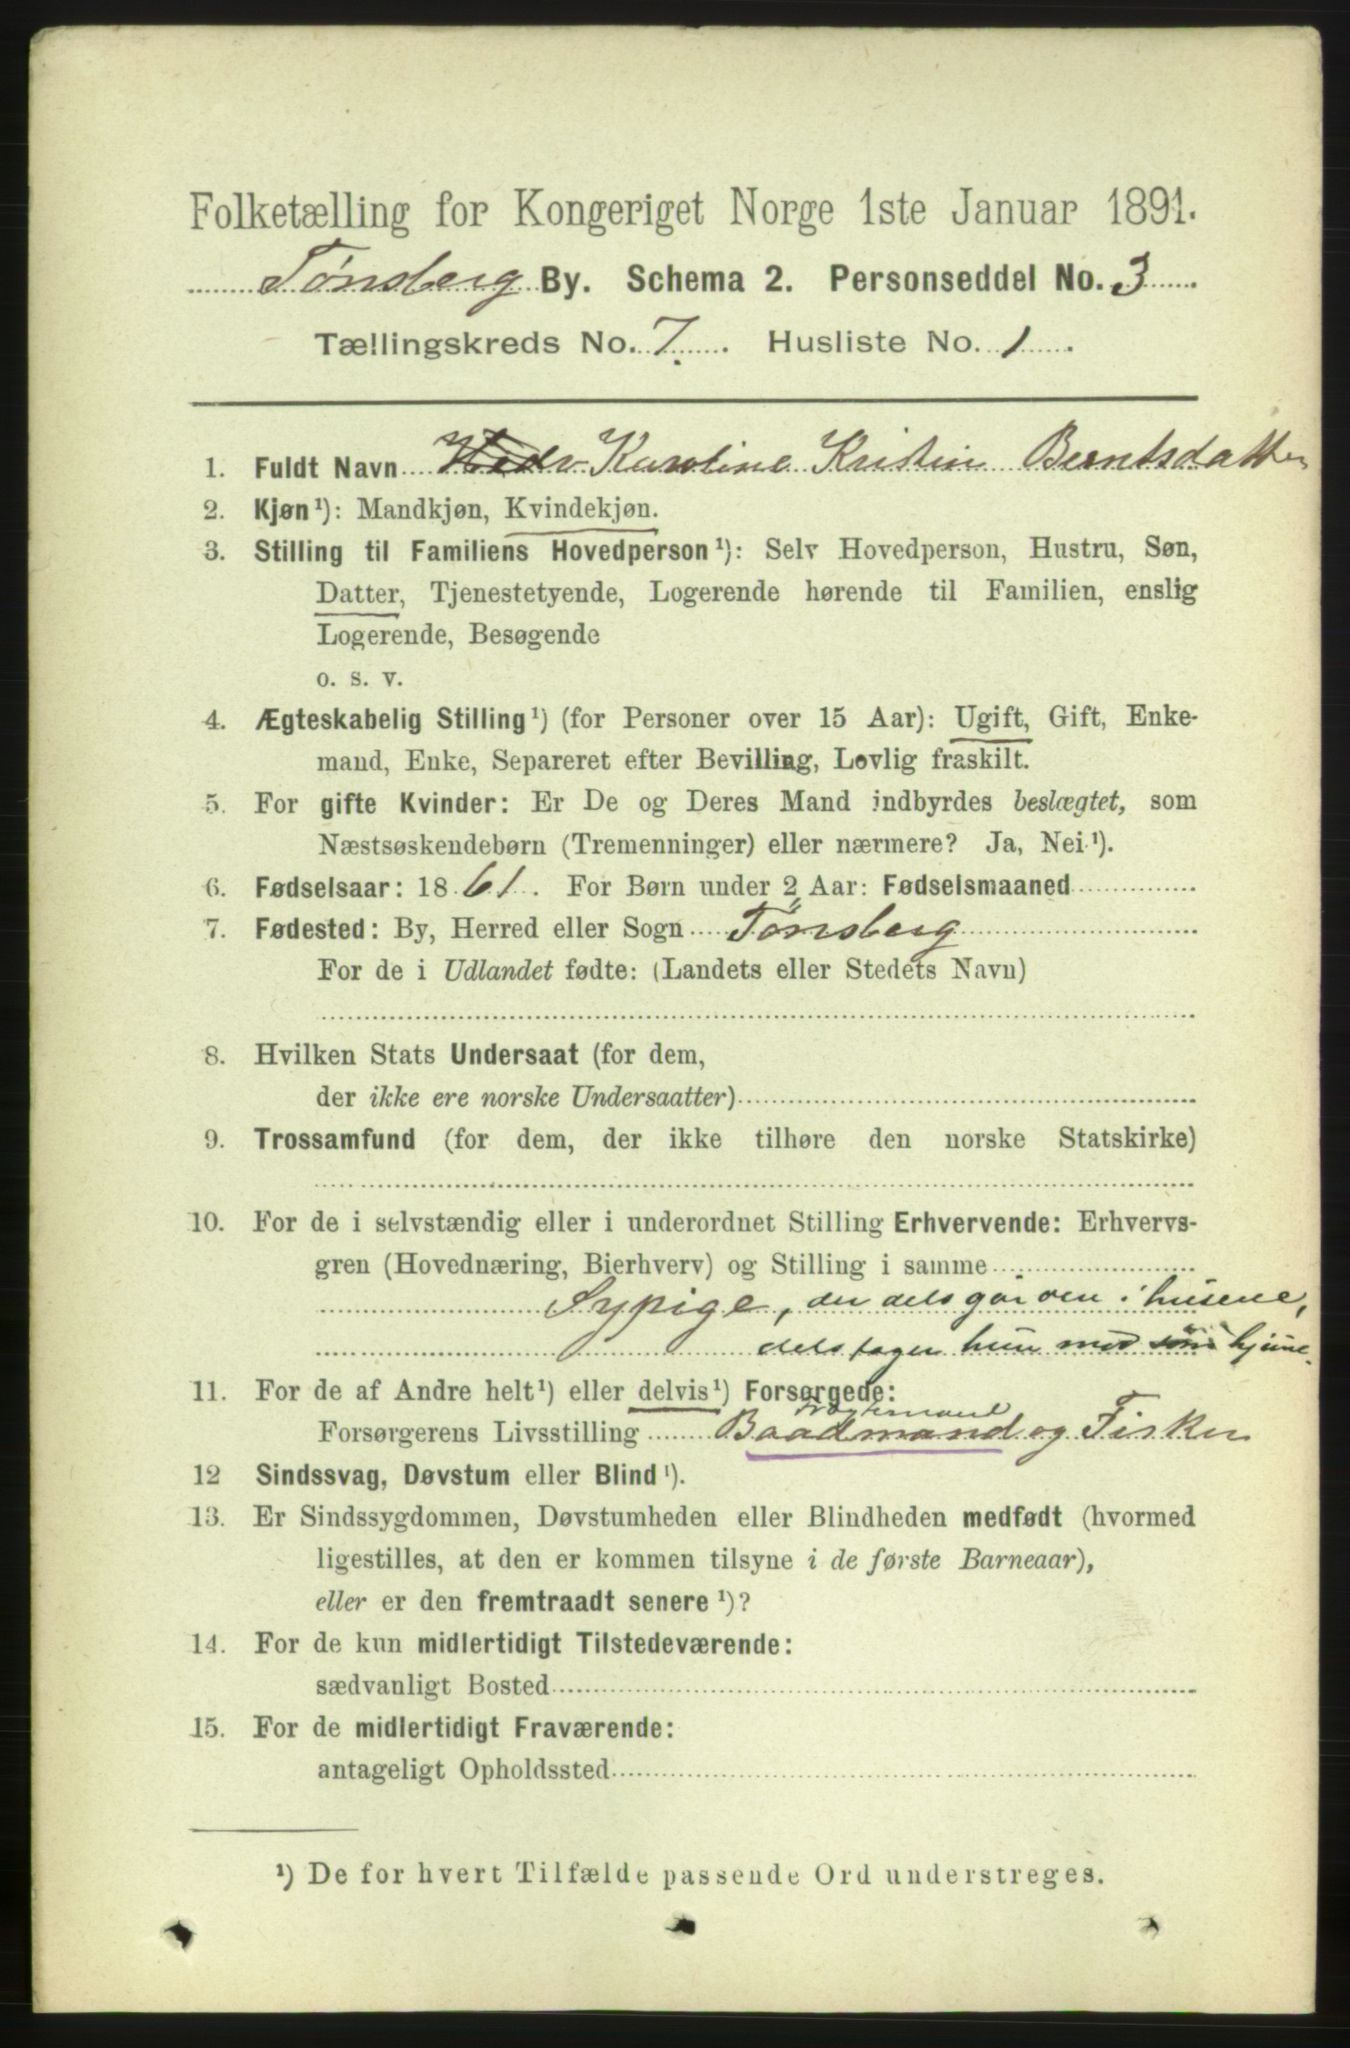 Folketælling for Kongeriget Norge 1ste Januar 1891.
Tønsberg By. Schema 2. Personseddel No. 3
Tællingskreds No. 7. Husliste No. 1
1. Fuldt Navn Karoline Kristin Berntsdatter
2. Kjøn¹): Mandkjøn, Kvindekjøn.
3. Stilling til Familiens Hovedperson¹): Selv Hovedperson, Hustru, Søn,
Datter, Tjenestetyende, Logerende hørende til Familien, enslig
Logerende, Besøgende
o. s. v.
4. Ægteskabelig Stilling¹) (for Personer over 15 Aar): Ugift, Gift, Enke-
mand, Enke, Separeret efter Bevilling, Lovlig fraskilt.
5. For gifte Kvinder: Er De og Deres Mand indbyrdes beslægtet, som
Næstsøskendebørn (Tremenninger) eller nærmere? Ja, Nei¹).
6. Fødselsaar: 1861. For Børn under 2 Aar: Fødselsmaaned
7. Fødested: By, Herred eller Sogn Tønsberg
For de i Udlandet fødte: (Landets eller Stedets Navn)
8. Hvilken Stats Undersaat (for dem,
der ikke ere norske Undersaatter)
9. Trossamfund (for dem, der ikke tilhøre den norske Statskirke)
10. For de i selvstændig eller i underordnet Stilling Erhvervende: Erhvervs-
gren (Hovednæring, Bierhverv) og Stilling i samme
Sypige, der dels går i husene,
dels tager hun med hjime.
11. For de af Andre helt¹) eller delvis¹) Forsørgede:
Forsørgerens Livsstilling Baadmand og Fisker
12 Sindssvag, Døvstum eller Blind¹).
13. Er Sindssygdommen, Døvstumheden eller Blindheden medfødt (hvormed
ligestilles, at den er kommen tilsyne i de første Barneaar),
eller er den fremtraadt senere¹)?
14. For de kun midlertidigt Tilstedeværende:
sædvanligt Bosted
15. For de midlertidigt Fraværende:
antageligt Opholdssted
¹) De for hvert Tilfælde passende Ord understreges.